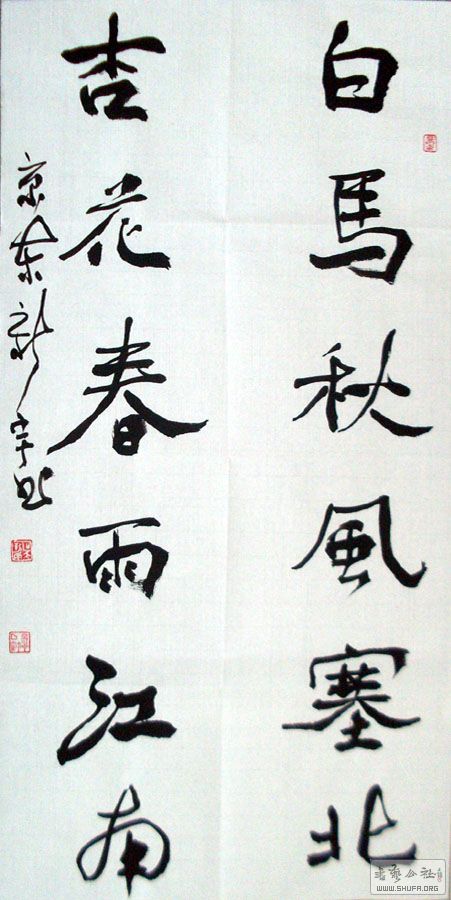 白马秋風塞北
吉花春雨江南
京東新宇
書藝公社
WWW.SHUFA.ORG